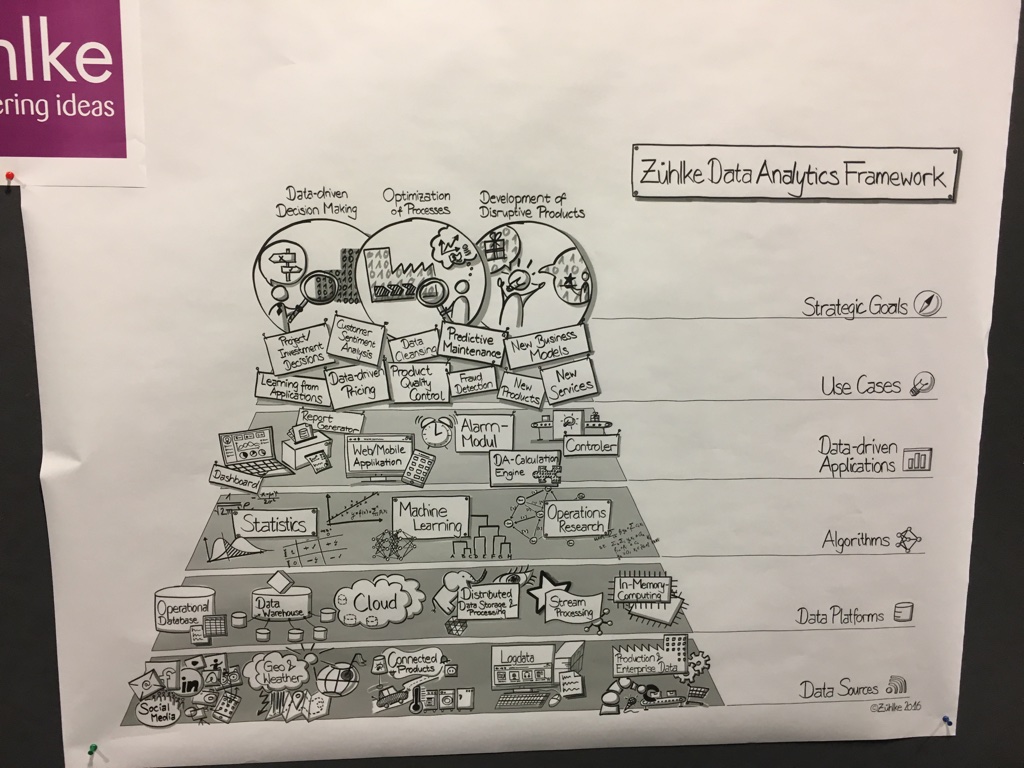 hlke
ering ideas
Zühlke Data Analytics Framework
Data-driven
Decision Making
Optimization
of Processes
Development of
Disruptive Products
Strategic Goals
Project/
Investment
Decisions
Customer
Sentiment
Analysis
Data
Cleansing
Predictive
Maintenance
New Business
Models
Learning from
Applications
Data-drive
Pricing
Product
Quality
Control
Fraud
Detection
New
Products
New
Services
Use Cases
Report
Generator
Dashboard
Web/Mobile
Applikation
Alarm-
Modul
DA-Calculation
Engine
Controler
Data-driven
Applications
Statistics
Machine
Learning
Operations
Research
Algorithms
Operational
Database
Data
Warehouse
Cloud
Distributed
Data Storage &
Processing
Stream
Processing
In-Memory-
Computing
Data Platforms
Social
Media
in
Geo &
Weather
Connected
Products
Logdata
Production &
Enterprise Data
Data Sources
©Zühlke 2016